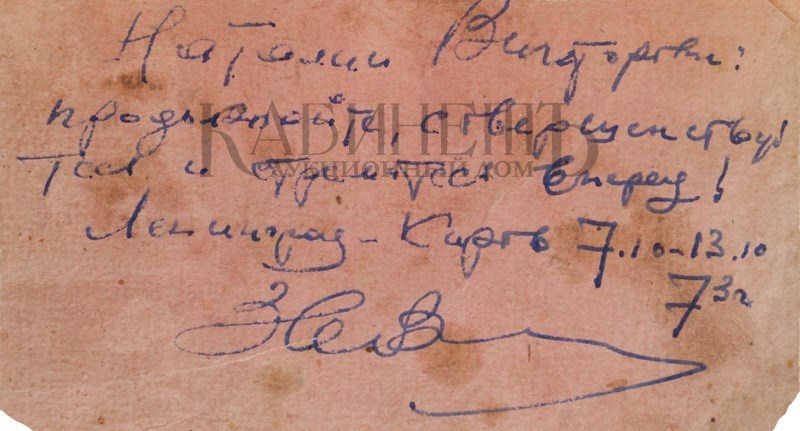 Наталии Викторовне:
продолжайте, совершенствуй
тесь и стремитесь вперед!
Ленинград – Киров 7.10–13.10
73г
КАБИНЕТЪ
АУКЦИОННЫЙ ДОМ